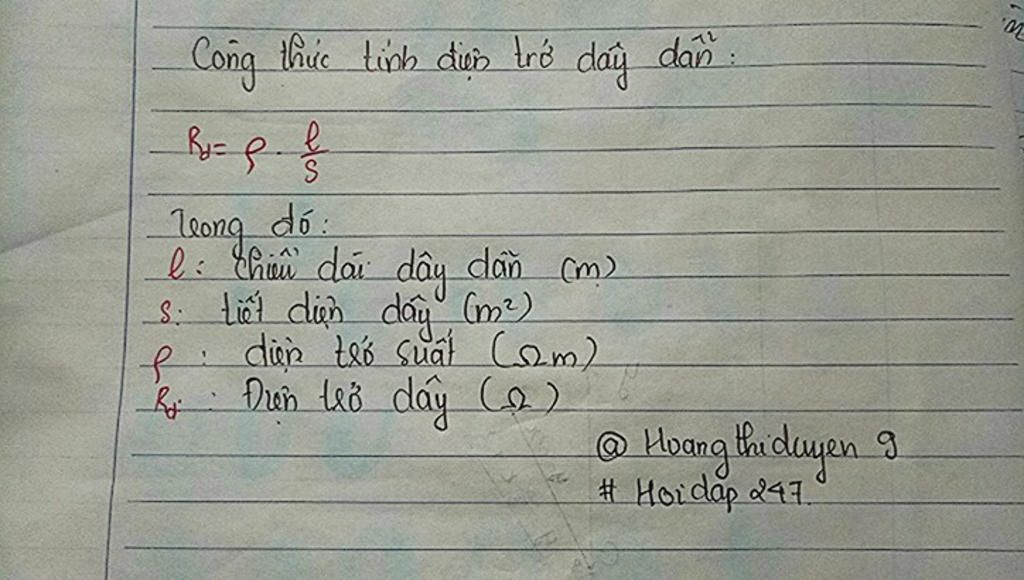 Công thức tính điện trở dây dẫn:
Rd = ρ · l/S
Trong đó:
l: chiều dài dây dẫn (m)
S: tiết diện dây (m²)
ρ: điện trở suất (Ωm)
Rd: Điện trở dây (Ω)
@ Hoangthiduyen 9
# Hoidap 247.